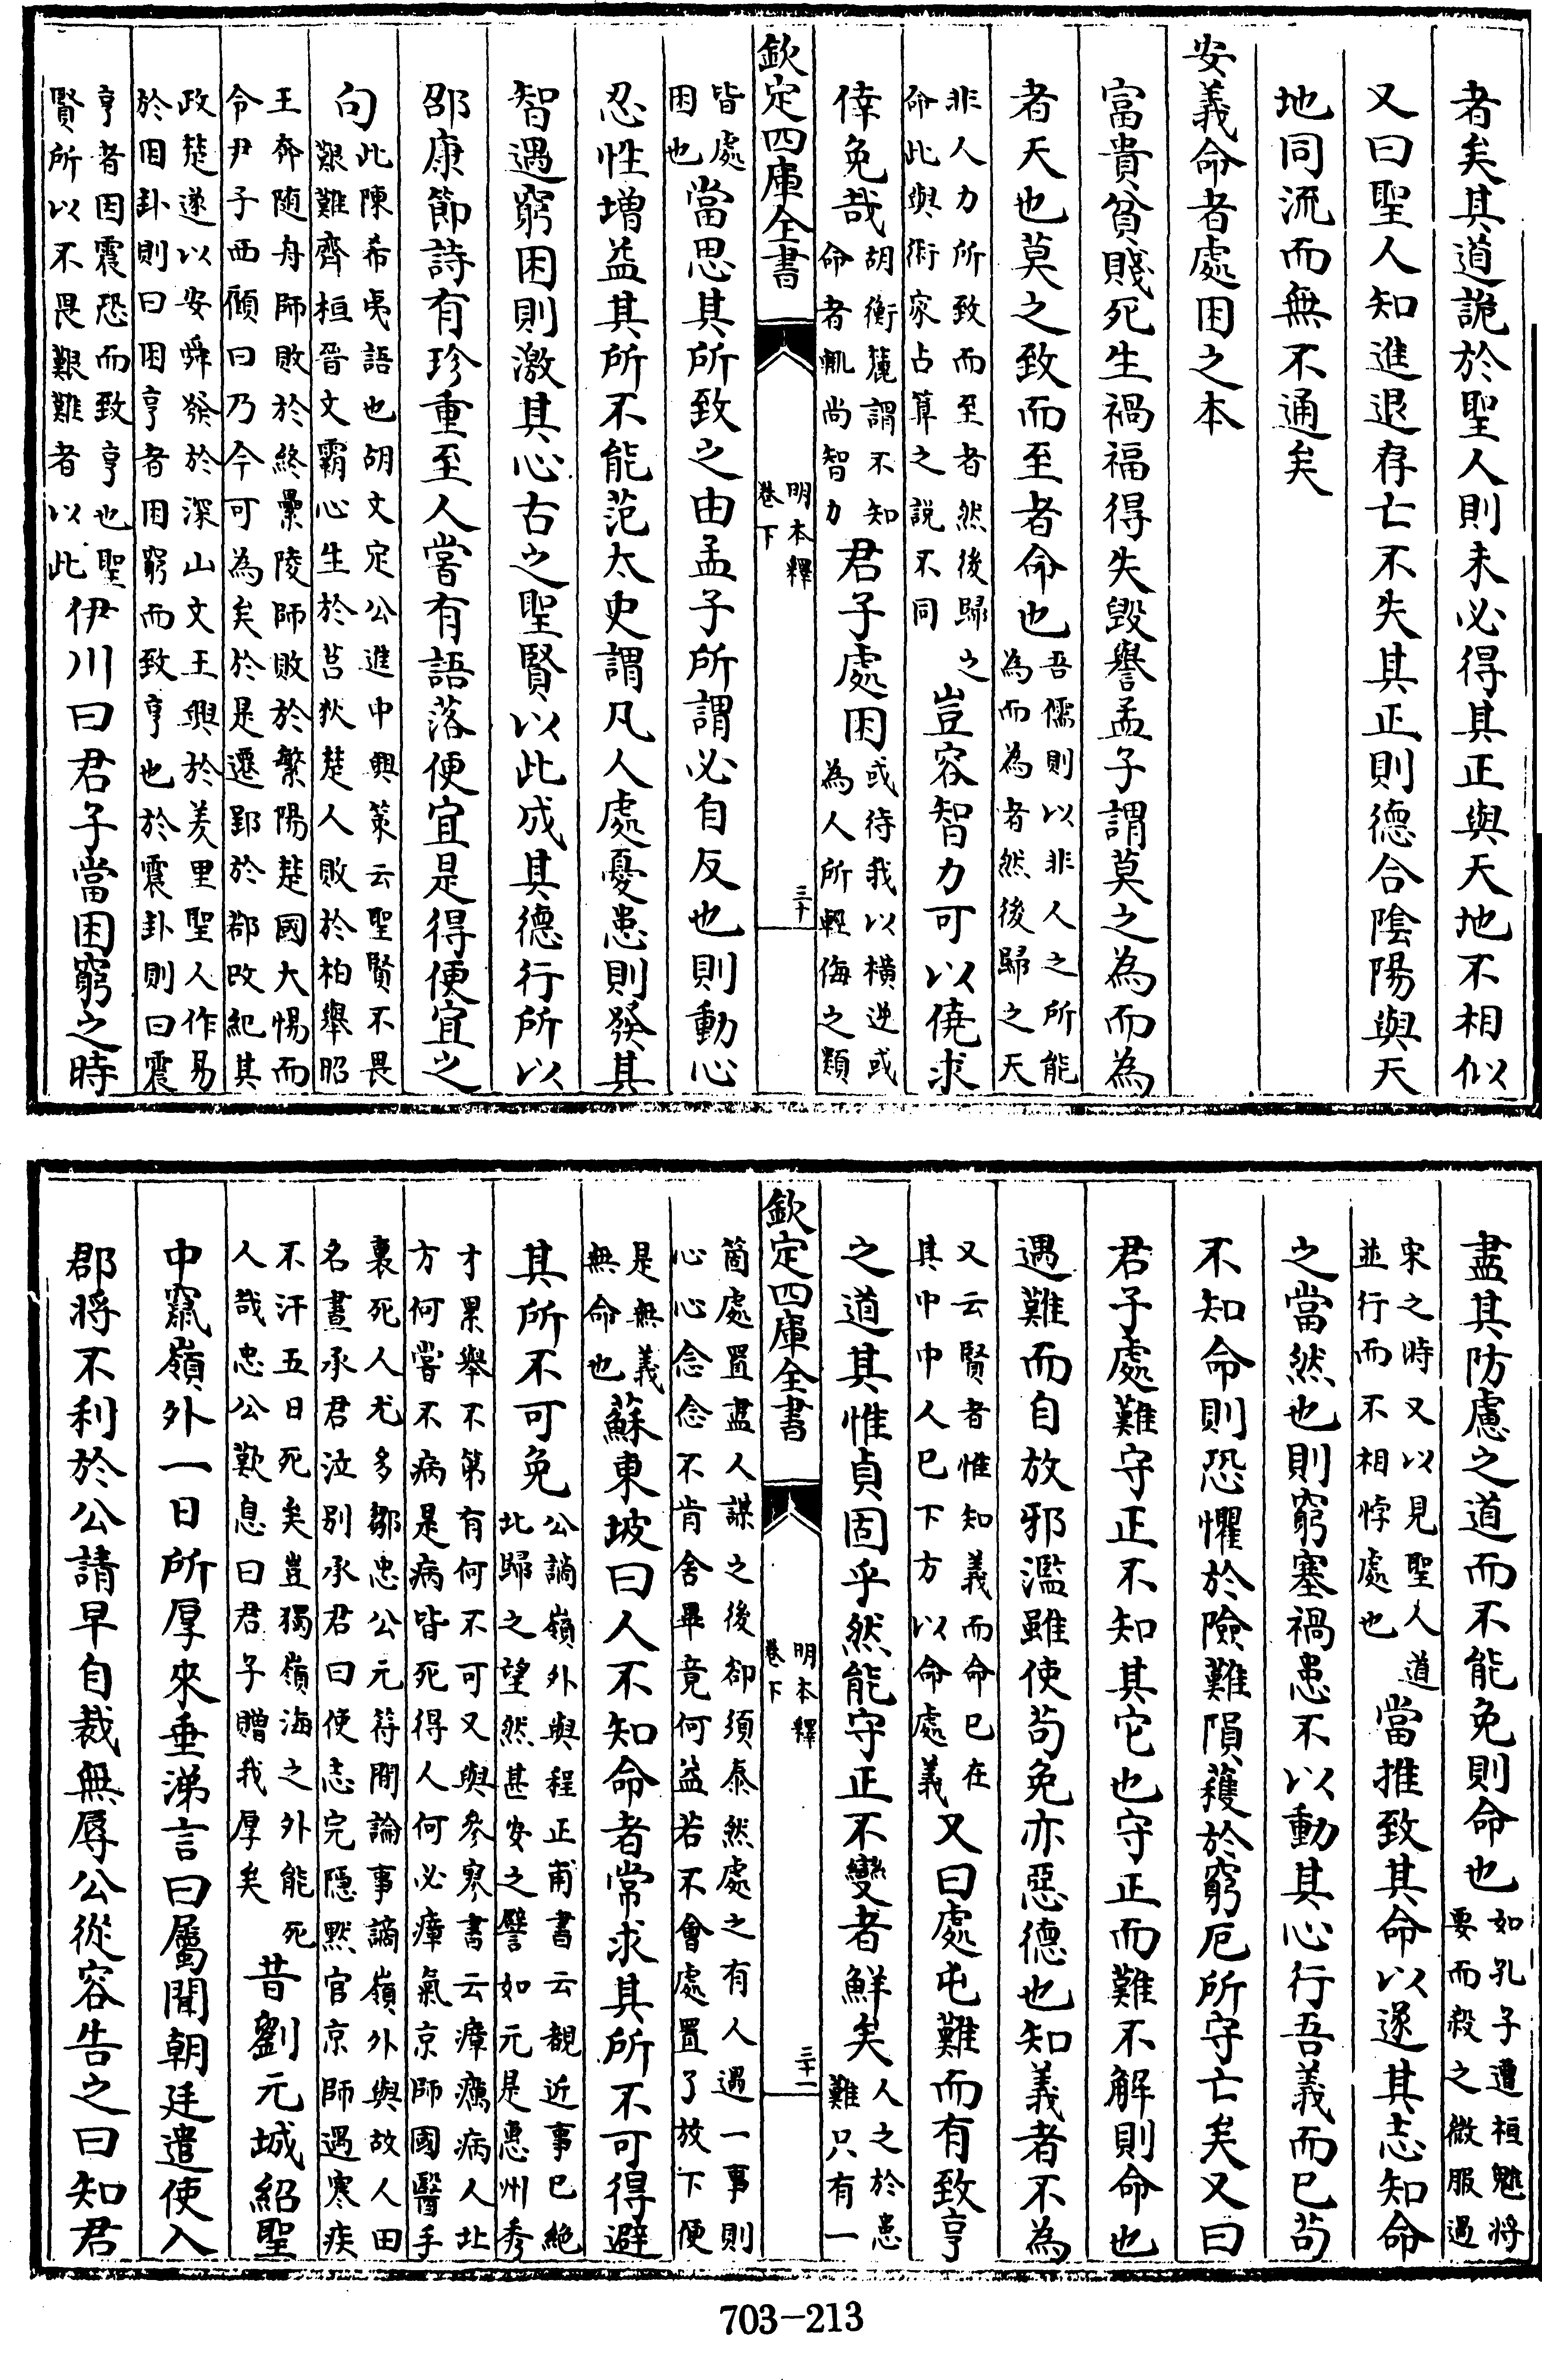 者矣其道詭於聖人則未必得其正與天地不相似
又曰聖人知進退存亡不失其正則德合陰陽與天
地同流而無不通矣
安義命者處困之本
富貴貧賤死生禍福得失毀譽孟子謂莫之為而為
者天也莫之致而至者命也吾儒則以非人之所能
為而為者然後歸之天
非人力所致而至者然後歸之
命此與術家占算之説不同
豈容智力可以僥求
倖免哉胡衡麓謂不知
命者輒尚智力
君子處困或待我以横逆或
為人所輕侮之類
欽定四庫全書
明本釋
卷下
三十
皆處
困也
當思其所致之由孟子所謂必自反也則動心
忍性増益其所不能范太史謂凡人處憂患則發其
智遇窮困則激其心古之聖賢以此成其德行所以
邵康節詩有珍重至人嘗有語落便宜是得便宜之
句此陳希夷語也胡文定公進中興策云聖賢不畏
艱難齊桓晉文霸心生於莒狄楚人敗於柏舉昭
王奔随舟師敗於終纍陵師敗於繁陽楚國大惕而
令尹子西願曰乃今可為矣於是遷郢於鄀改紀其
政楚遂以安舜發於深山文王興於羑里聖人作易
於困卦則曰困亨者困窮而致亨也於震卦則曰震
亨者因震恐而致亨也聖
賢所以不畏艱難者以此
伊川曰君子當困窮之時
盡其防慮之道而不能免則命也如孔子遭桓魋將
要而殺之微服過
宋之時又以見聖人道
並行而不相悖處也
當推致其命以遂其志知命
之當然也則窮塞禍患不以動其心行吾義而已苟
不知命則恐懼於險難隕穫於窮厄所守亡矣又曰
君子處難守正不知其它也守正而難不解則命也
遇難而自放邪濫雖使苟免亦惡德也知義者不為
又云賢者惟知義而命已在
其中中人已下方以命處義
又曰處屯難而有致亨
之道其惟貞固乎然能守正不變者鮮矣人之於患
難只有一
欽定四庫全書
明本釋
卷下
三十一
箇處置盡人謀之後卻須泰然處之有人遇一事則
心心念念不肯舍畢竟何益若不會處置了放下便
是無義
無命也
蘇東坡曰人不知命者常求其所不可得避
其所不可免公謫嶺外與程正甫書云覩近事已絶
北歸之望然甚安之譬如元是惠州秀
才累舉不第有何不可又與參寥書云瘴癘病人北
方何嘗不病是病皆死得人何必瘴氣京師國醫手
裏死人尤多鄒忠公元符間論事謫嶺外與故人田
名晝承君泣别承君曰使志完隱黙官京師遇寒疾
不汗五日死矣豈獨嶺海之外能死
人哉忠公歎息曰君子贈我厚矣
昔劉元城紹聖
中竄嶺外一日所厚來垂涕言曰屬聞朝廷遣使入
郡將不利於公請早自裁無辱公從容告之曰知君
703-213